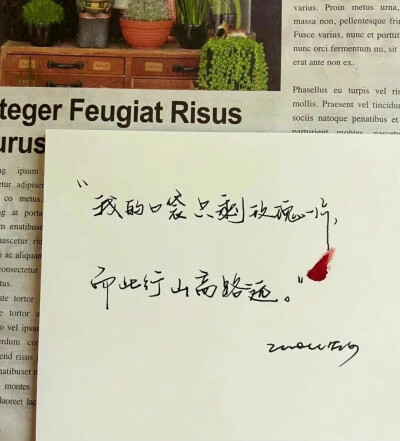 varius. Proin metus urna,
massa non, pellentesque frin
Fusce varius, nunc et porttit
nunc orci fermentum mi, sit
erat ante non ex.
Phasellus eu turpis vel ris
mollis. Praesent vel tincidun
sociis natoque penatibus et
parturient montes, nascetur
teger Feugiat Risus
urus
ng ipsum
etur adipisc
co metus,
g at porta
m enatibus
ascetur rid
ac aliquan
consectetur
tus.
ate tortor
e tortor a
o vel ipsum
erdum co
end risus
natibus et
montes
laoreet lac
“我的口袋只剩玫瑰一片,
而此行山高路遥。”